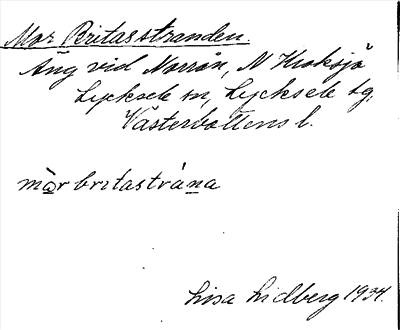 Mor Britasstranden.
Äng vid Norrån, N Kroksjö
Lycksele sn, Lycksele tg.
Västerbottens l.
mòr britastrána
Lisa Lidberg 1934.